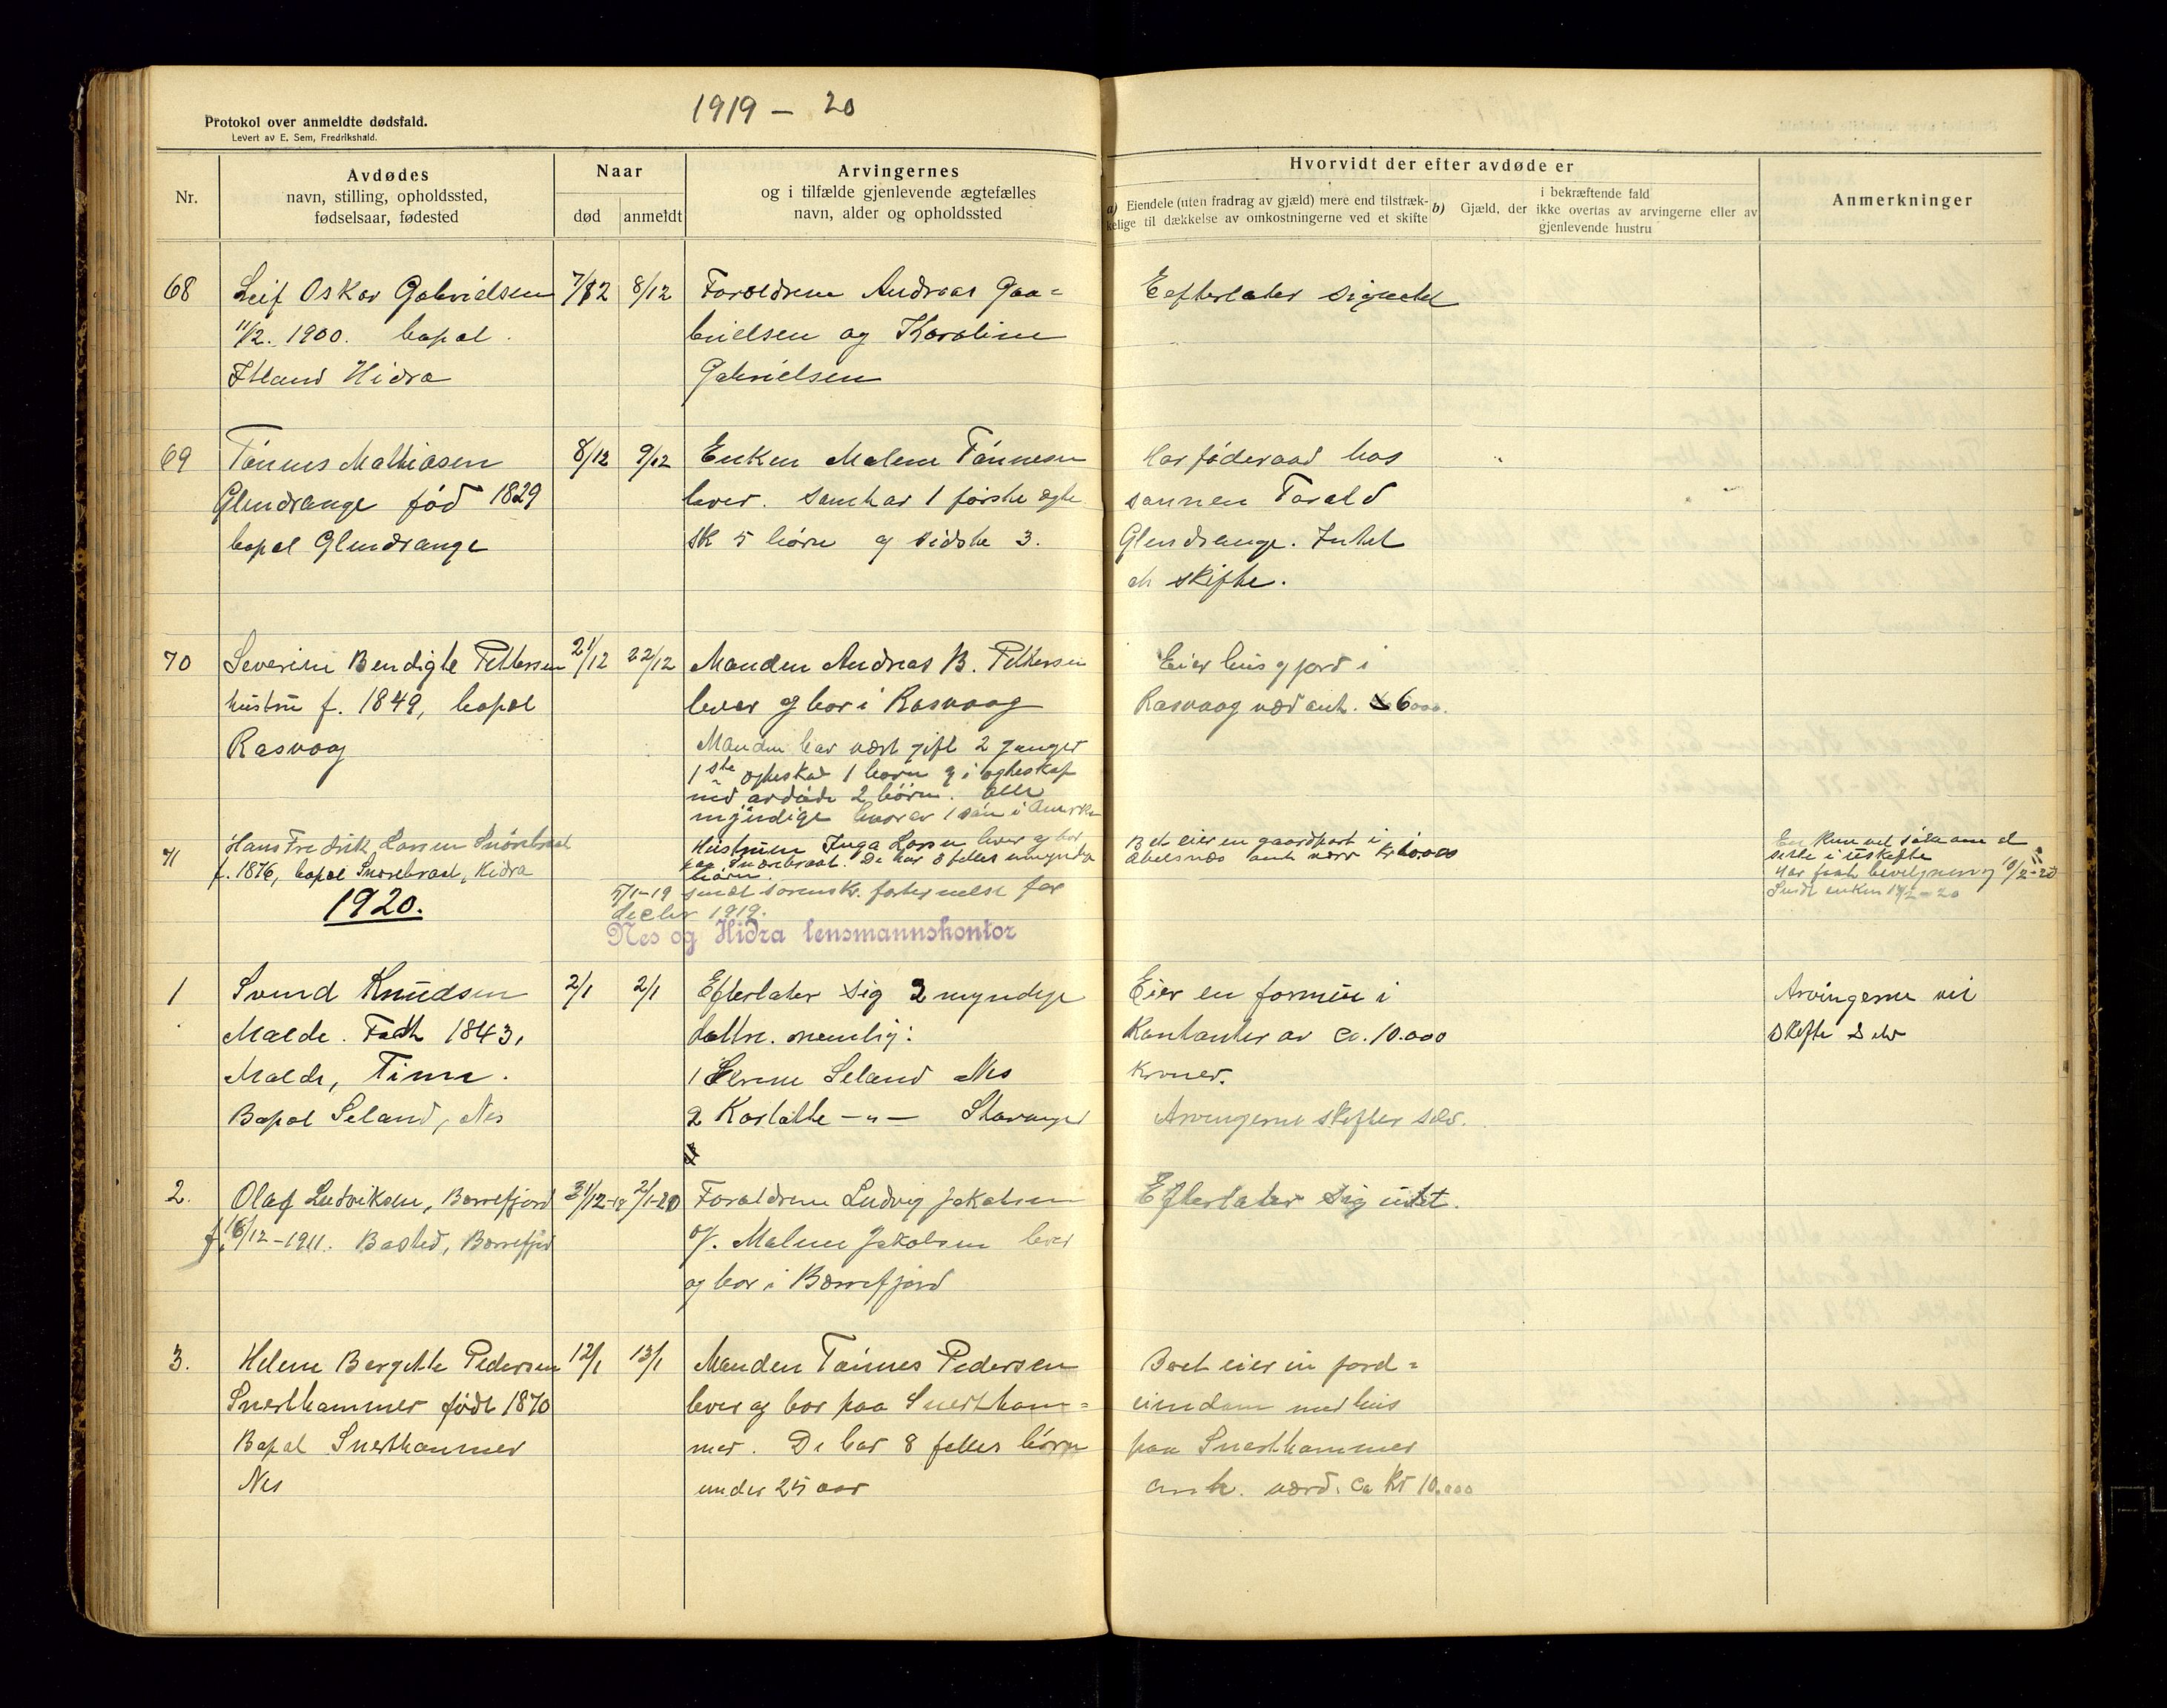 1919 – 20
Protokol over anmeldte dødsfald.
Levert av E. Sem, Fredrikshald.
Nr.
Avdødes
navn, stilling, opholdssted,
fødselsaar, fødested
Naar
død
anmeldt
Arvingernes
og i tilfælde gjenlevende ægtefælles
navn, alder og opholdssted
Hvorvidt der efter avdøde er
a) Eiendele (uten fradrag av gjæld) mere end tilstræk-
kelige til dækkelse av omkostningerne ved et skifte
b) Gjæld, der
i bekræftende fald
ikke overtas av arvingerne eller av
gjenlevende hustru
Anmerkninger
68
Leif Oskar Gabrielsen
11/2. 1900. bopæl
Itland Hidra
7/12
8/12
Foroldrene Andreas Gaa=
brielsen og Karoline
Gabrielsen
Eefterlater sig
69
Tónnes Mathiasen
Glendrange fód 1829
bopæl Glendrange
8/12
9/12
Enken Malene Tónnesen
lever. Samt har 1 første ægte
sk 5 börn og sidste 3.
Har føderaad hos
sønnen Torald
Glendrange. Intet
at skifte.
70
Severine Bendigte Pettersen
hustru f. 1849, bopæl
Rasvaag
21/12
22/12
Manden Andreas B. Pettersen
lever og bor i Rasvaag
Manden har vært gift 2 ganger
1ste ægteskab 1 barn og i ægteskap
med avdøde 2 börn. Alle
myndige hvorav 1 sön i Amerika
Eier hus og jord i
Rasvaag værd ant. 6000.
71
Hans Fredrik Larsen Snörebraat
f. 1876, bopæl Snorebraat, Hidra
Hustruen Inga Larsen lever og bor
paa Snørebraat. De har 8 felles umyndige
börn.
Boet eier en gaardpart i
Abelsnæs ant værd kr 10.000
Enken vil søke om at
sitte i uskifte
Har faat bevilgning 10/2-20
Sendt enken 14/2-20
1920.
5/1-19 sendt sorenskr. fortegnelse for
decbr 1919.
Nes og Hidra lensmannskontor
1
Svend Knudsen
Malde. Født 1843,
Malde, Time.
Bopæl Seland, Nes
2/1
2/1
Efterlater sig 2 myndige
døttre. nemlig:
1 Serene Seland Nes
2 Karlotte –„– Stavanger
Eier en formue i
Kontanter av ca. 10.000
Kroner.
Arvingerne skifter selv.
Arvingerne vil
skifte selv
2.
Olaf Ludviksen, Borrefjord
f. 16/12-1911. Bosted, Borrefjord
31/12-19
2/1-20
Foraldrene Ludvig Jakobsen
og. Malene Jakobsen lever
og bor i Børrefjord
Efterlater sig intet.
3.
Helene Bergitte Pedersen
Snerthammer født 1870
Bopæl Snerthammer
Nes
12/1
13/1
Manden Tónnes Pedersen
lever og bor paa Snertham=
mer. De har 8 felles börn
under 25 aar
Boet eier en jord=
eiendom med hus
paa Snerthammer
ant. værd. ca kr 10.000